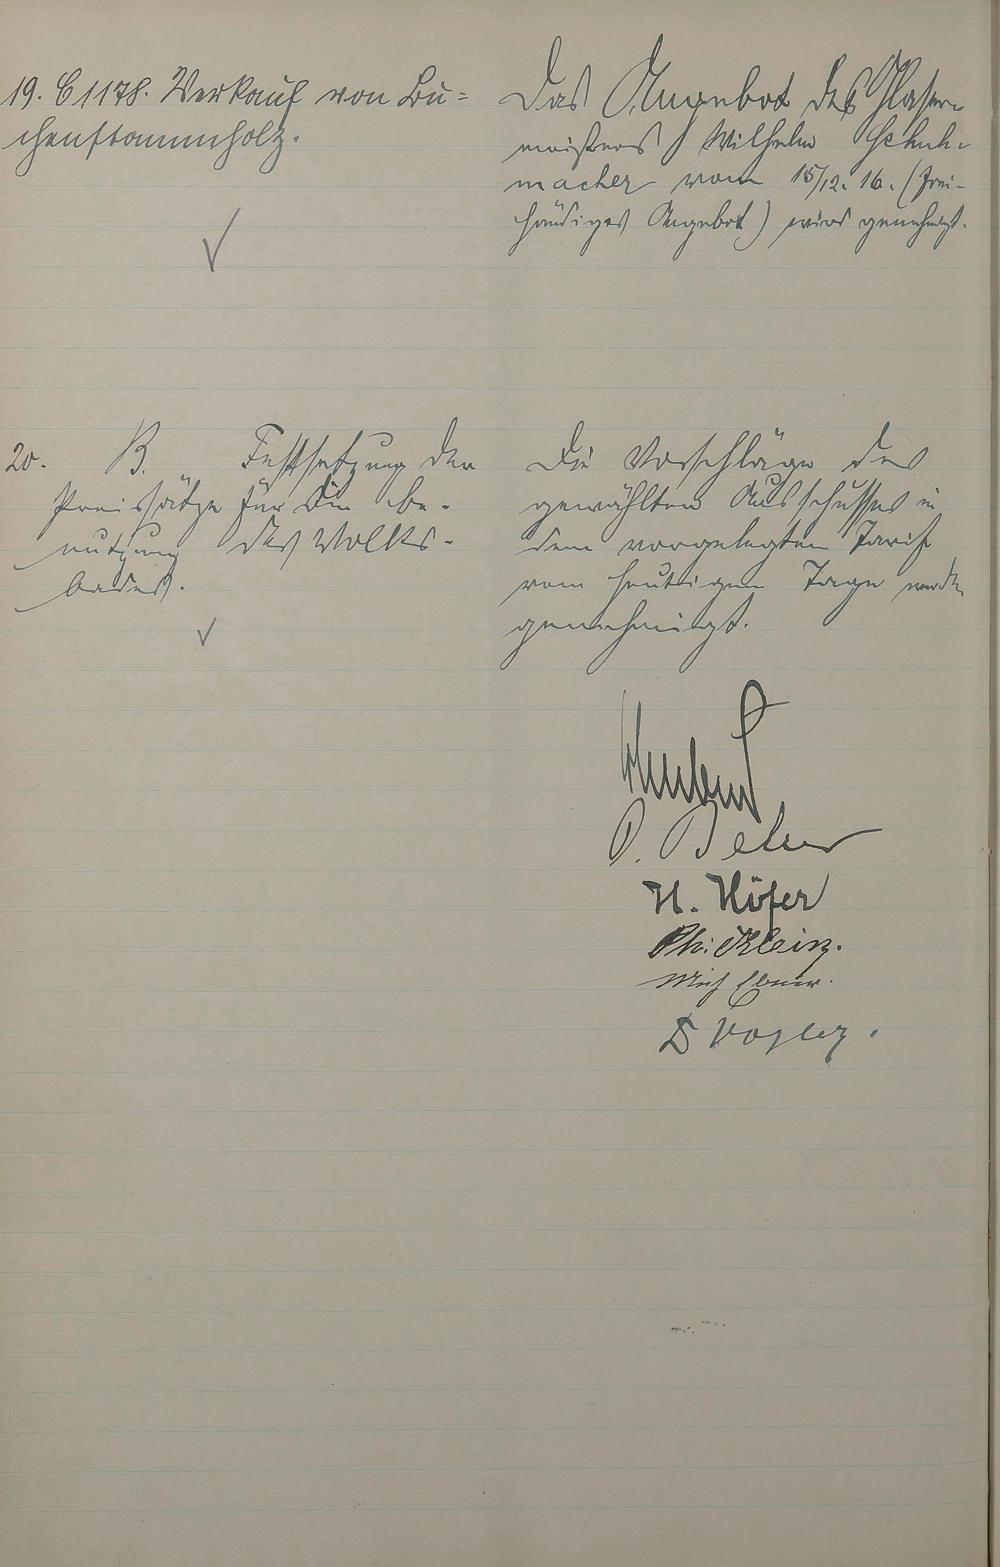 19. C 1178. Verkauf von Bu=
chenstammholz.
Das Angebot des Glaser-
meisters Wilhelm Schuh-
macher vom 15/12. 16. (Frei-
händiges Angebot) wird genehmigt.
20. B. Festsetzung der
Preissätze für die Be-
nutzung des Volks-
bades.
Die Vorschläge des
gewählten Ausschusses in
dem vorgelegten Tarif
vom heutigen Tage werden
genehmigt.
H. Höfer
Ph. Klein.